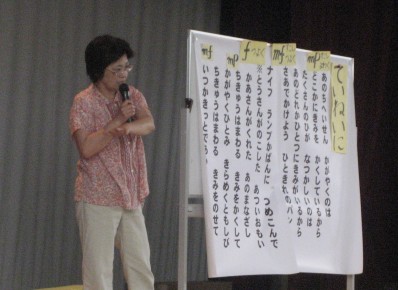 ていねいに
mp
mf
f つよく
mp
mf
あのちへいせん かがやくのは
どこかにきみを かくしているから
たくさんのひが なつかしいのは
あのどれかひとつにきみがいるから
さあでかけよう ひときれのパン
ナイフ ランプかばんに つめこんで
※とうさんがのこした あついおもい
かあさんがくれた あのまなざし
ちきゅうはまわる きみをかくして
かがやくひとみ きらめくともしび
ちきゅうはまわる きみをのせて
いつかきっとであう